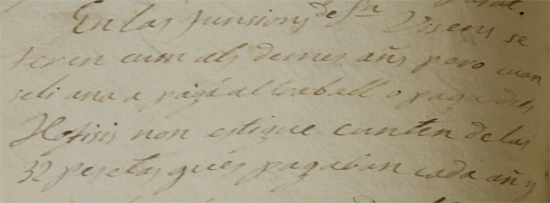 En las funsions de Sn Visens se
feren cum als demes añs pero cuan
seli ana a pagá al traball o paga dels
Hofisis non estigue cunten de las
32 pesetas qués pagaban cada añ y